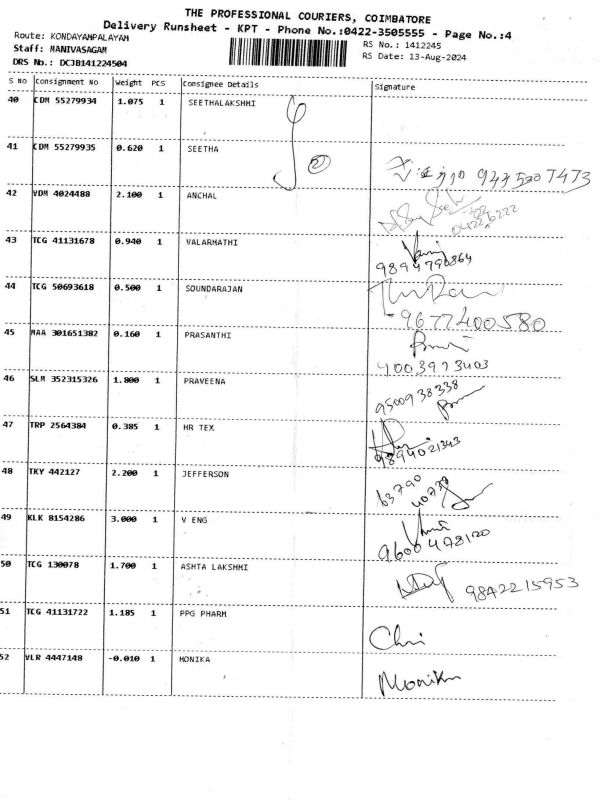 THE PROFESSIONAL COURIERS, COIMBATORE
Delivery Runsheet - KPT - Phone No.:0422-3505555 - Page No.:4
Route: KONDAYAMPALAYAM
RS No.: 1412245
Staff: MANIVASAGAM
RS Date: 13-Aug-2024
DRS No.: DCJB141224504
S No Consignment No Weight PCS Consignee Details Signature
40 CDM 55279934 1.075 1 SEETHALAKSHMI
41 CDM 55279935 0.620 1 SEETHA
42 VDM 4024488 2.100 1 ANCHAL
43 TCG 41131678 0.940 1 VALARMATHI
9894790864
44 TCG 50693618 0.500 1 SOUNDARAJAN
9677400580
45 MAA 301651382 0.160 1 PRASANTHI
46 SLM 352315326 1.800 1 PRAVEENA
9500938338
47 TRP 2564384 0.385 1 HR TEX
9894021343
48 TKY 442127 2.200 1 JEFFERSON
63790
49 KLK 8154286 3.000 1 V ENG
50 TCG 130078 1.700 1 ASHTA LAKSHMI
9842215953
51 TCG 41131722 1.185 1 PPG PHARM
52 VLR 4447148 -0.010 1 MONIKA
Monika